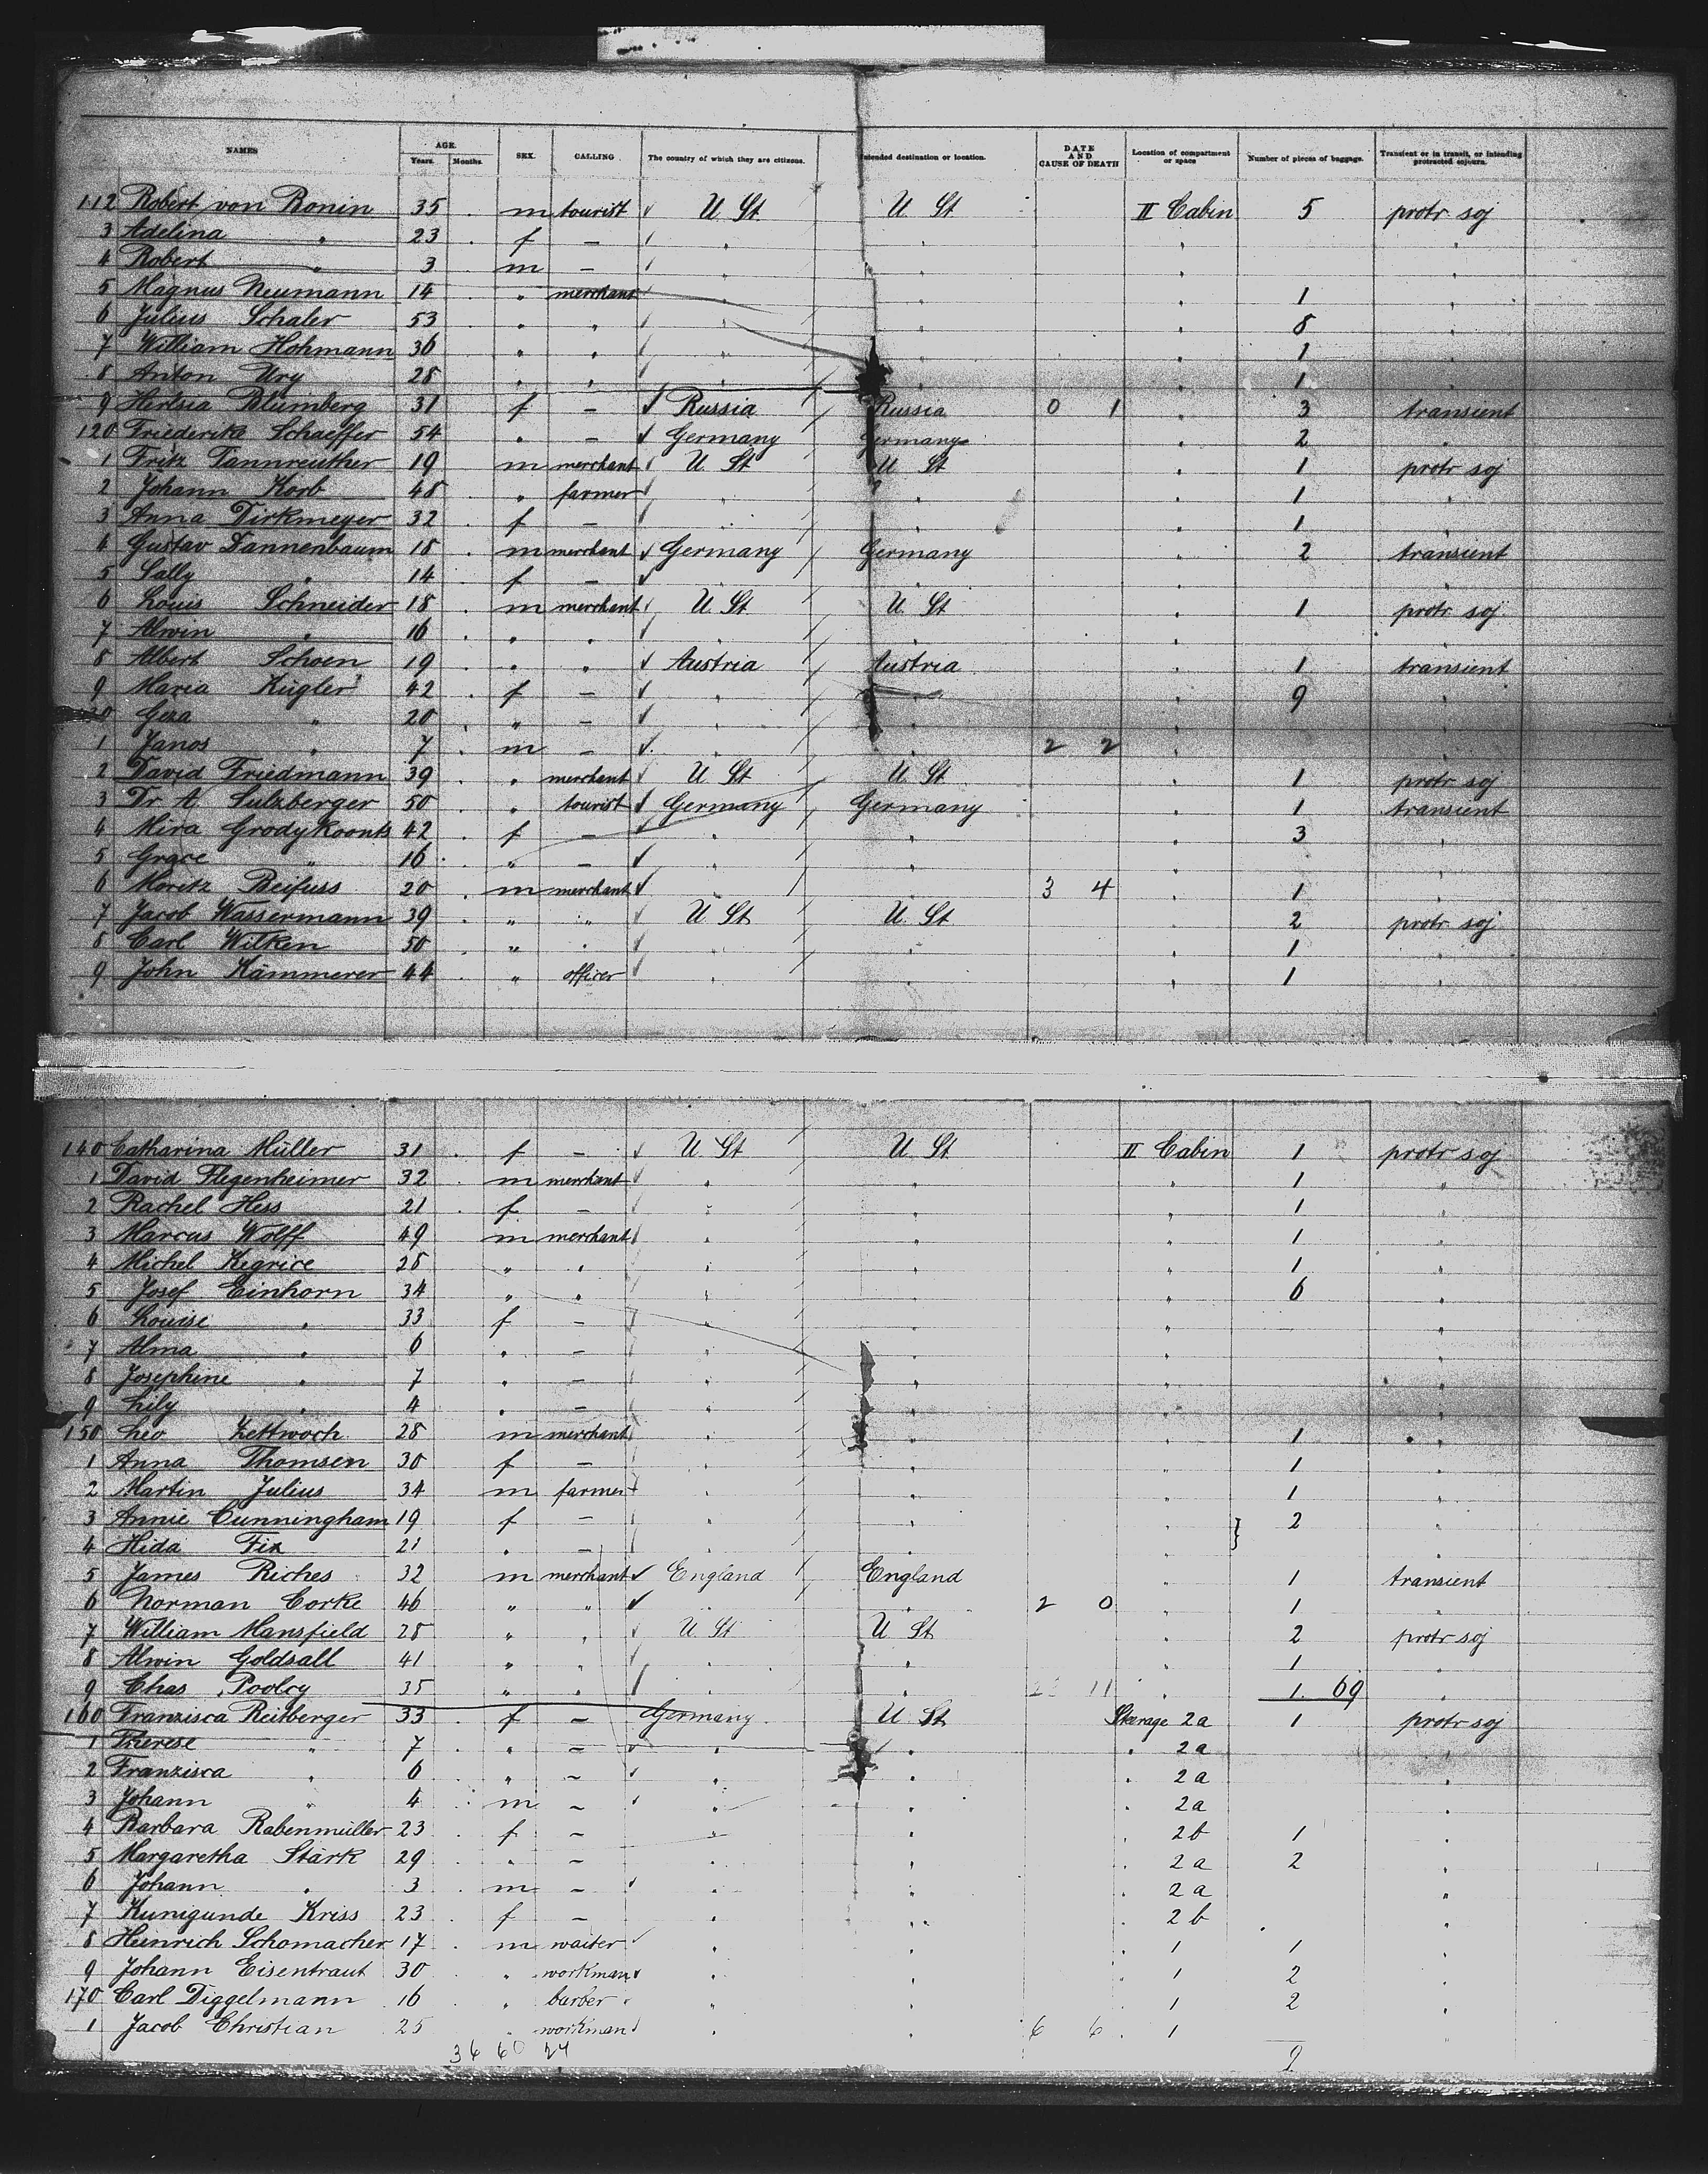 NAMES AGE. Years. Months. SEX. CALLING The country of which they are citizens. Intended destination or location. DATE AND CAUSE OF DEATH Location of compartment or space Number of pieces of baggage. Transient or in transit, or intending protracted sojourn.
112 Robert von Ronin 35 m tourist U St U St II Cabin 5 protr soj
3 Adelina " 23 f – " " " "
4 Robert " 3 m – " " " "
5 Magnus Neumann 14 " merchant " " " 1 "
6 Julius Schaler 53 " " " " " 8 "
7 William Hohmann 36 " " " " " 1 "
8 Anton Ury 28 " " " " " 1 "
9 Hertsia Blumberg 31 f – Russia Russia 0 1 " 3 transient
120 Friederike Schaeffer 54 " – Germany Germany " 2 "
1 Fritz Tannreuther 19 m merchant U St U St " 1 protr soj
2 Johann Korb 48 " farmer " " " 1 "
3 Anna Dirkmeyer 32 f – " " " 1 "
4 Gustav Dannenbaum 18 m merchant Germany Germany " 2 transient
5 Sally " 14 f – " " " "
6 Louis Schneider 18 m merchant U St U St " 1 protr soj
7 Alwin " 16 " " " " " "
8 Albert Schoen 19 " " Austria Austria " 1 transient
9 Maria Kugler 42 f – " " " 9 "
30 Geza " 20 " – " " " "
1 Janos " 7 m – " " 2 2 " "
2 David Friedmann 39 " merchant U St U St " 1 protr soj
3 Dr A. Sulzberger 50 " tourist Germany Germany " 1 transient
4 Mira Grodykoonts 42 f – " " " 3 "
5 Grace " 16 " – " " " "
6 Moritz Beifuss 20 m merchant " " 3 4 " 1 "
7 Jacob Wassermann 39 " " U St U St " 2 protr soj
8 Carl Wilken 50 " " " " " 1 "
9 John Kämmerer 44 " officer " " " 1 "
140 Catharina Müller 31 f – U St U St II Cabin 1 protr soj
1 David Flegenheimer 32 m merchant " " " 1 "
2 Rachel Hess 21 f – " " " 1 "
3 Marcus Wolff 49 m merchant " " " 1 "
4 Michel Kegrice 28 " " " " " 1 "
5 Josef Einhorn 34 " " " " " 6 "
6 Louise " 33 f – " " " "
7 Alma " 6 " – " " " "
8 Josephine " 7 " – " " " "
9 Lily " 4 " – " " " "
150 Leo Zettwoch 28 m merchant " " " 1 "
1 Anna Thomsen 30 f – " " " 1 "
2 Martin Julius 34 m farmer " " " 1 "
3 Annie Cunningham 19 f – " " " } 2 "
4 Hida Fix 21 " – " " " "
5 James Riches 32 m merchant England England " 1 transient
6 Norman Corke 46 " " " " 2 0 " 1 "
7 William Mansfield 28 " " U St U St " 2 protr soj
8 Alwin Goldsall 41 " " " " " 1 "
9 Chas Pooley 35 " " " " 11 " 1. 69 "
160 Franzisca Reitberger 33 f – Germany U St Steerage 2a 1 protr soj
1 Therese " 7 " – " " " 2a "
2 Franzisca " 6 " – " " " 2a "
3 Johann " 4 m – " " " 2a "
4 Barbara Rabenmüller 23 f – " " " 2b 1 "
5 Margaretha Stärk 29 " – " " " 2a 2 "
6 Johann " 3 m – " " " 2a "
7 Kunigunde Kriss 23 f – " " " 2b "
8 Heinrich Schomacher 17 m waiter " " " 1 1 "
9 Johann Eisentraut 30 " workman " " " 1 2 "
170 Carl Diggelmann 16 " barber " " " 1 2 "
1 Jacob Christian 25 " workman " " 6 6 " 1 "
36 60 24 9